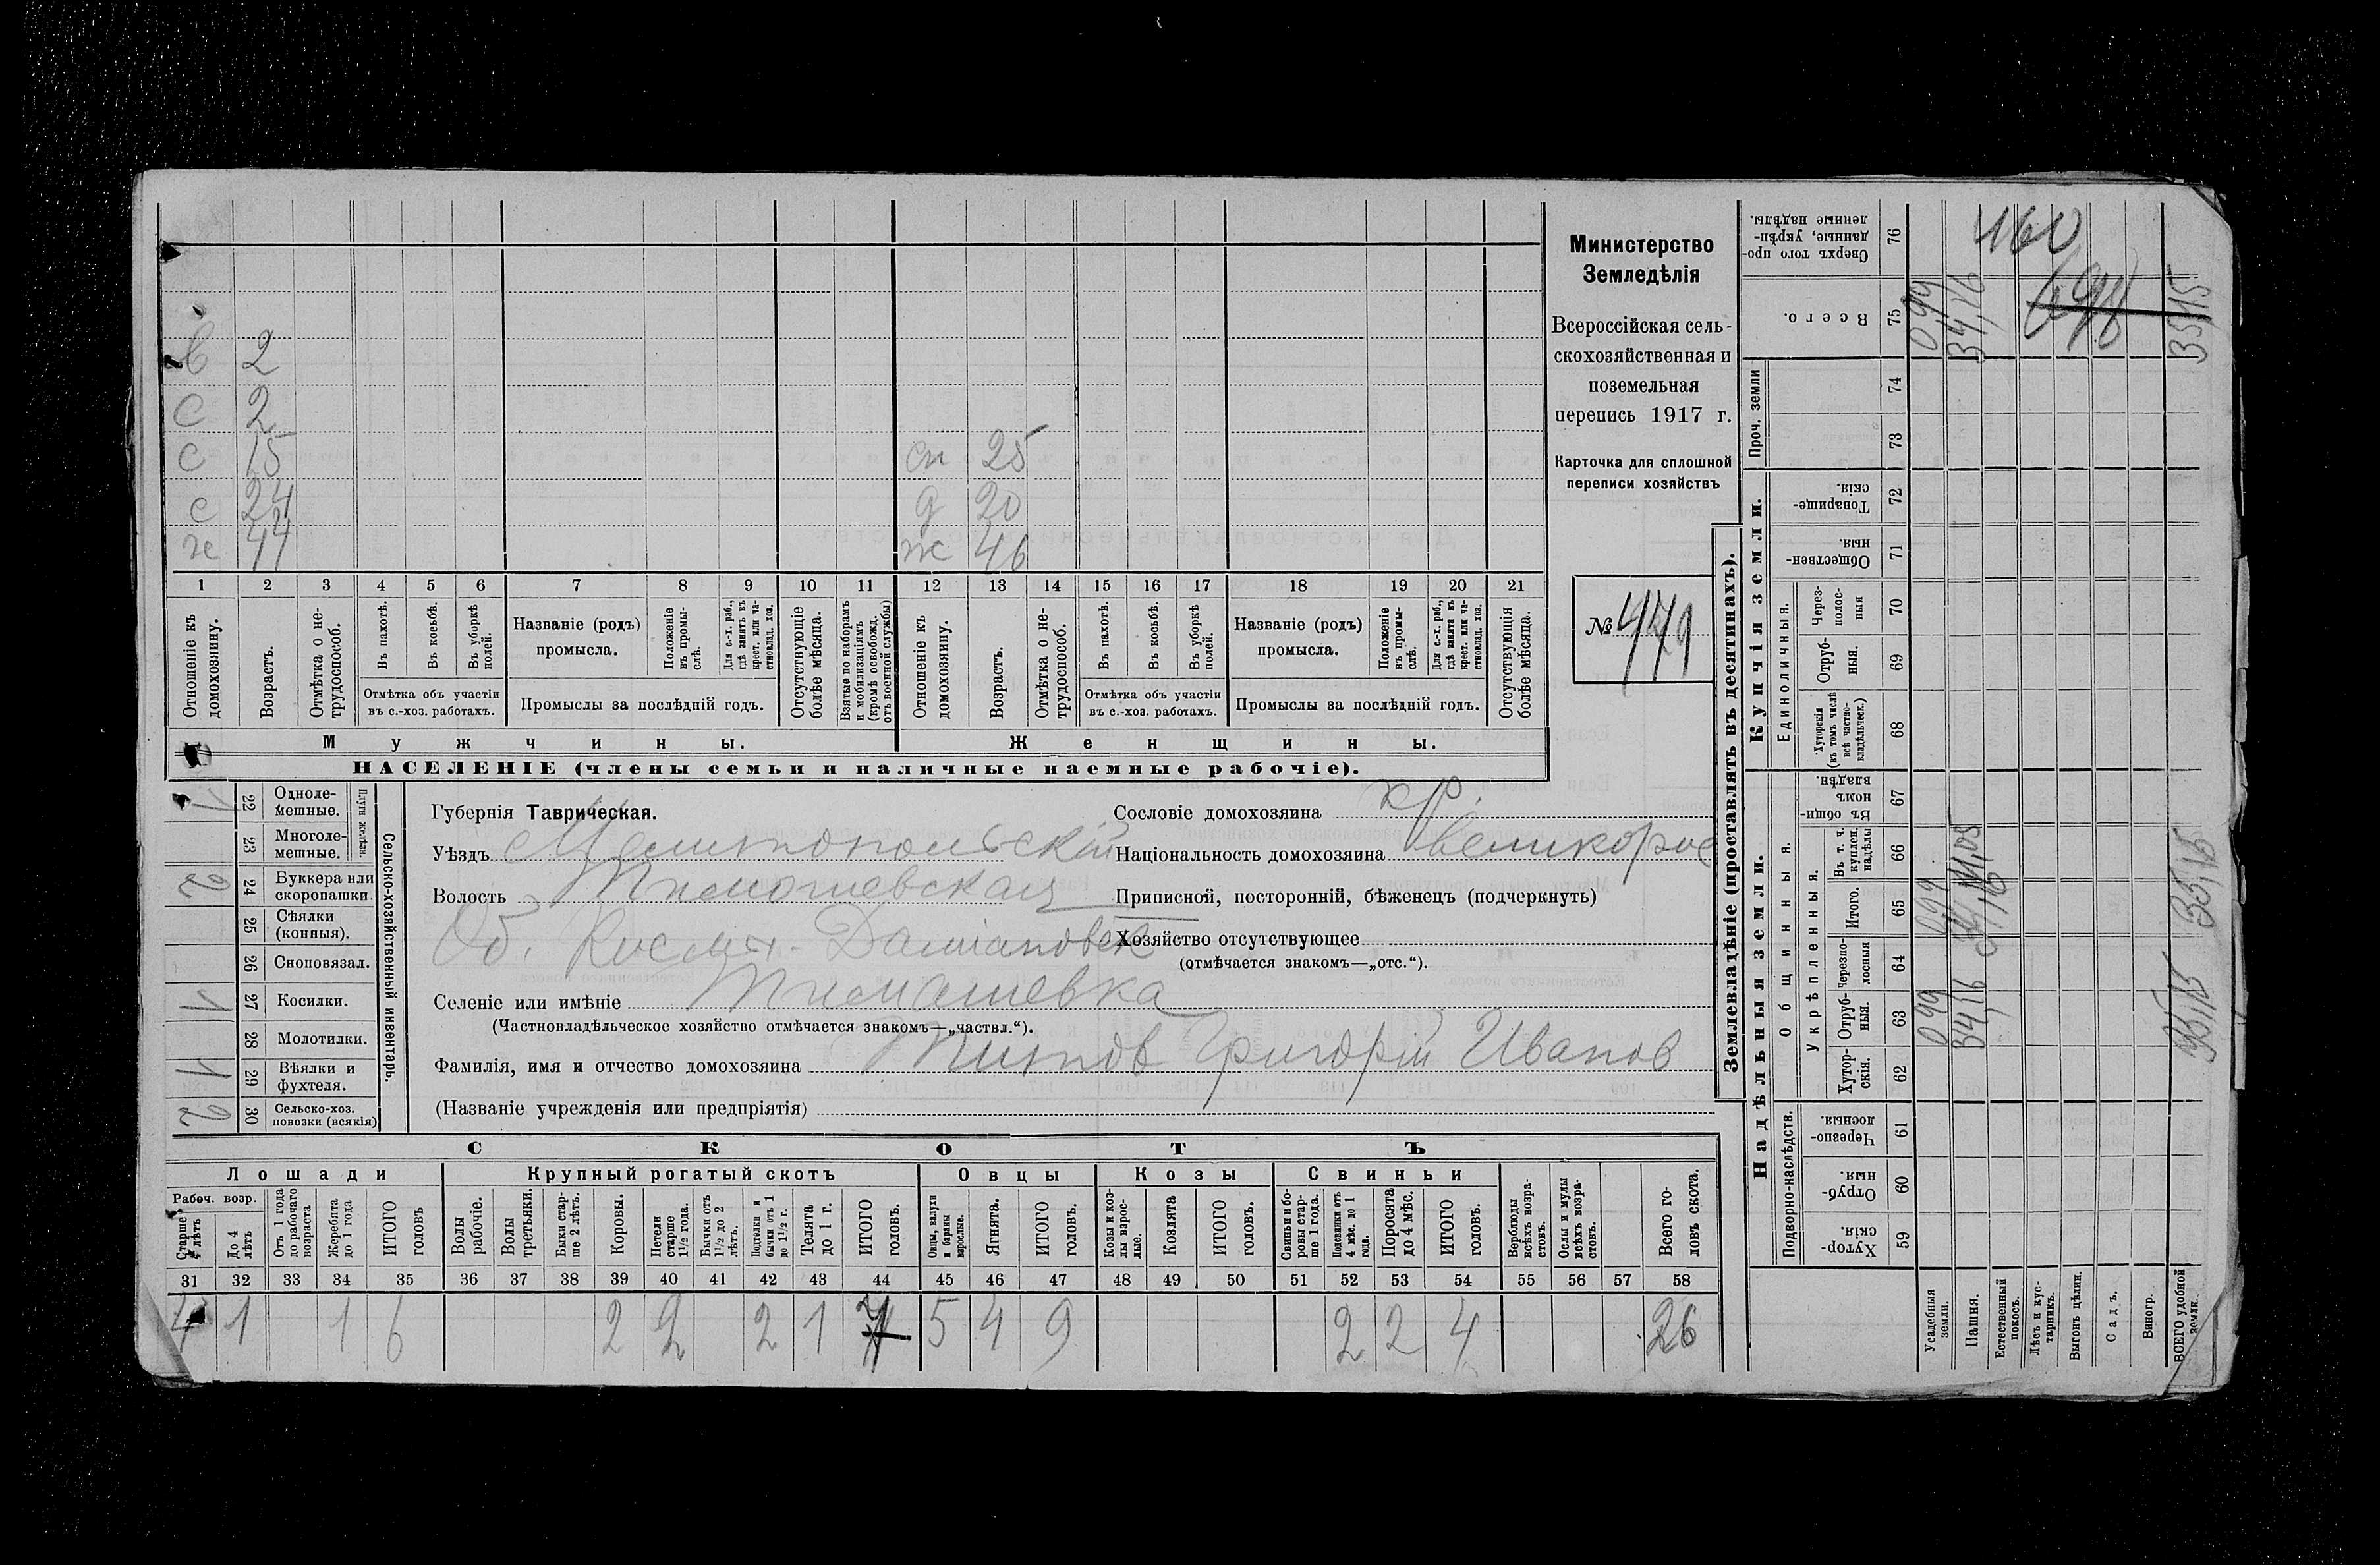 Министерство
Земледѣлія
Всероссійская сель-
скохозяйственная и
поземельная
перепись 1917 г.
Карточка для сплошной
переписи хозяйствъ
№ 449
в 2
с 2
с 15 сн 25
с 24 д 20
х 44 ж 46
1 2 3 4 5 6 7 8 9 10 11 12 13 14 15 16 17 18 19 20 21
Отношеніе къ домохозяину.
Возрастъ.
Отмѣтка о не-трудоспособ.
Въ пахотѣ.
Въ косьбѣ.
Въ уборкѣ полей.
Отмѣтка объ участіи въ с.-хоз. работахъ.
Названіе (родъ) промысла.
Положеніе въ промы-слѣ.
Для с.-х. раб., гдѣ занятъ въ крест. или ча-стновлад. хоз.
Промыслы за послѣдній годъ.
Отсутствующіе болѣе мѣсяца.
Взятые по наборамъ и мобилизаціямъ (кромѣ освобожд. отъ военной службы)
Отношеніе къ домохозяину.
Возрастъ.
Отмѣтка о не-трудоспособ.
Въ пахотѣ.
Въ косьбѣ.
Въ уборкѣ полей.
Отмѣтка объ участіи въ с.-хоз. работахъ.
Названіе (родъ) промысла.
Положеніе въ промы-слѣ.
Для с.-х. раб., гдѣ занята въ крест. или ча-стновлад. хоз.
Промыслы за послѣдній годъ.
Отсутствующія болѣе мѣсяца.
Мужчины. Женщины.
НАСЕЛЕНІЕ (члены семьи и наличные наемные рабочіе).
Сельско-хозяйственный инвентарь.
Плуги желѣзн.
1 22 Одноле-мешные.
23 Многоле-мешные.
2 24 Буккера или скоропашки.
25 Сѣялки (конныя).
26 Сноповязал.
1 27 Косилки.
28 Молотилки.
1 29 Вѣялки и фухтеля.
2 30 Сельско-хоз. повозки (всякія)
Губернія Таврическая.
Уѣздъ Мелитопольскій
Волость Тимошевская
Об. Косма-Даміановск
Селеніе или имѣніе Тимашевка
(Частновладѣльческое хозяйство отмѣчается знакомъ—„частвл.“).
Фамилія, имя и отчество домохозяина Титов Григорій Иванов
(Названіе учрежденія или предпріятія)
Сословіе домохозяина кр.
Національность домохозяина великорос
Приписной, посторонній, бѣженецъ (подчеркнуть)
Хозяйство отсутствующее
(отмѣчается знакомъ—„отс.“).
СКОТЪ
Лошади Крупный рогатый скотъ Овцы Козы Свиньи
Рабоч. возр.
Старше 4 лѣтъ
До 4 лѣтъ
Отъ 1 года до рабочаго возраста
Жеребята до 1 года
ИТОГО головъ
Волы рабочіе.
Волы третьяки.
Быки стар-ше 2 лѣтъ.
Коровы.
Нетели старше 1½ года.
Бычки отъ 1½ до 2 лѣтъ.
Подтелки и бычки отъ 1 до 1½ г.
Телята до 1 г.
ИТОГО головъ.
Овцы, валухи и бараны взрослые.
Ягнята.
ИТОГО головъ.
Козы и коз-лы взрос-лые.
Козлята
ИТОГО головъ.
Свиньи и бо-ровы стар-ше 1 года.
Подсвинки отъ 4 мѣс. до 1 года.
Поросята до 4 мѣс.
ИТОГО головъ.
Верблюды всѣхъ возра-стовъ.
Ослы и мулы всѣхъ возра-стовъ.
Всего го-ловъ скота.
31 32 33 34 35 36 37 38 39 40 41 42 43 44 45 46 47 48 49 50 51 52 53 54 55 56 57 58
4 1 1 6 2 2 2 1 7 5 4 9 2 2 4 26
Землевладѣніе (проставлять въ десятинахъ).
Надѣльныя земли. Купчія земли.
Подворно-наслѣдств.
Общинныя.
Укрѣпленныя.
Единоличныя.
Проч. земли
Сверхъ того про-данные, укрѣп-ленные надѣлы. 76
Всего. 75
74
73
Товарище-скія. 72
Обществен-ныя. 71
Через-полос-ныя 70
Отруб-ныя. 69
Хуторскія (въ томъ числѣ всѣ частно-владѣльческ.) 68
Въ общи-номъ владѣн. 67
Въ т. ч. куплен. надѣлы 66
Итого. 65
Черезпо-лосныя 64
Отруб-ныя. 63
Хутор-скія. 62
Черезпо-лосныя 61
Отруб-ныя. 60
Хутор-скія. 59
460
698
0,99 34,16 35,15
11,05
0,99 34,16 35,15
0,99 34,16 35,15
Усадебныя земли.
Пашня.
Естественный покосъ.
Лѣсъ и кус-тарникъ.
Выгонъ цѣлин.
Садъ.
Виногр.
ВСЕГО удобной земли.